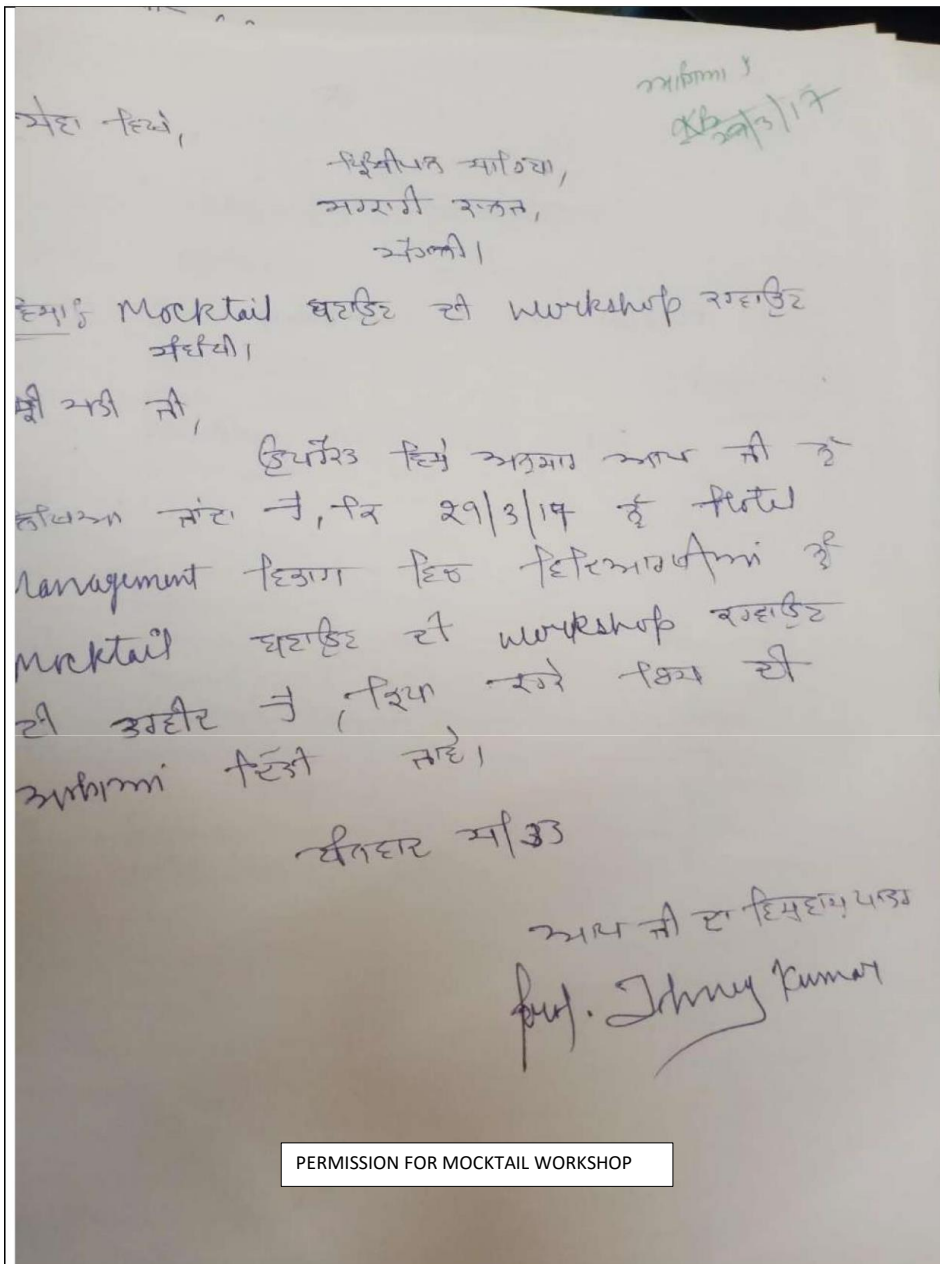 ਆਗਿਆ ਹੈ
29/3/17
ਸੇਵਾ ਵਿਖੇ,
ਪ੍ਰਿੰਸੀਪਲ ਸਾਹਿਬਾ,
ਸਰਕਾਰੀ ਕਾਲਜ,
ਵਿਸ਼ਾ: Mocktail ਬਣਾਉਣ ਦੀ workshop ਕਰਵਾਉਣ
ਸੰਬੰਧੀ।
ਸ੍ਰੀ ਮਤੀ ਜੀ,
ਉਪਰੋਕਤ ਵਿਸ਼ੇ ਅਨੁਸਾਰ ਆਪ ਜੀ ਨੂੰ
ਲਿਖਿਆ ਜਾਂਦਾ ਹੈ, ਕਿ 29/3/17 ਨੂੰ Hotel
Management ਵਿਭਾਗ ਵਿਚ ਵਿਦਿਆਰਥੀਆਂ ਨੂੰ
Mocktail ਬਣਾਉਣ ਦੀ workshop ਕਰਵਾਉਣ
ਦੀ ਤਜਵੀਜ਼ ਹੈ, ਕ੍ਰਿਪਾ ਕਰਕੇ ਇਸ ਦੀ
ਆਗਿਆ ਦਿੱਤੀ ਜਾਵੇ।
ਧੰਨਵਾਦ ਸਹਿਤ
ਆਪ ਜੀ ਦਾ ਵਿਸ਼ਵਾਸ ਪਾਤਰ
Prof. Johney Kumar
PERMISSION FOR MOCKTAIL WORKSHOP